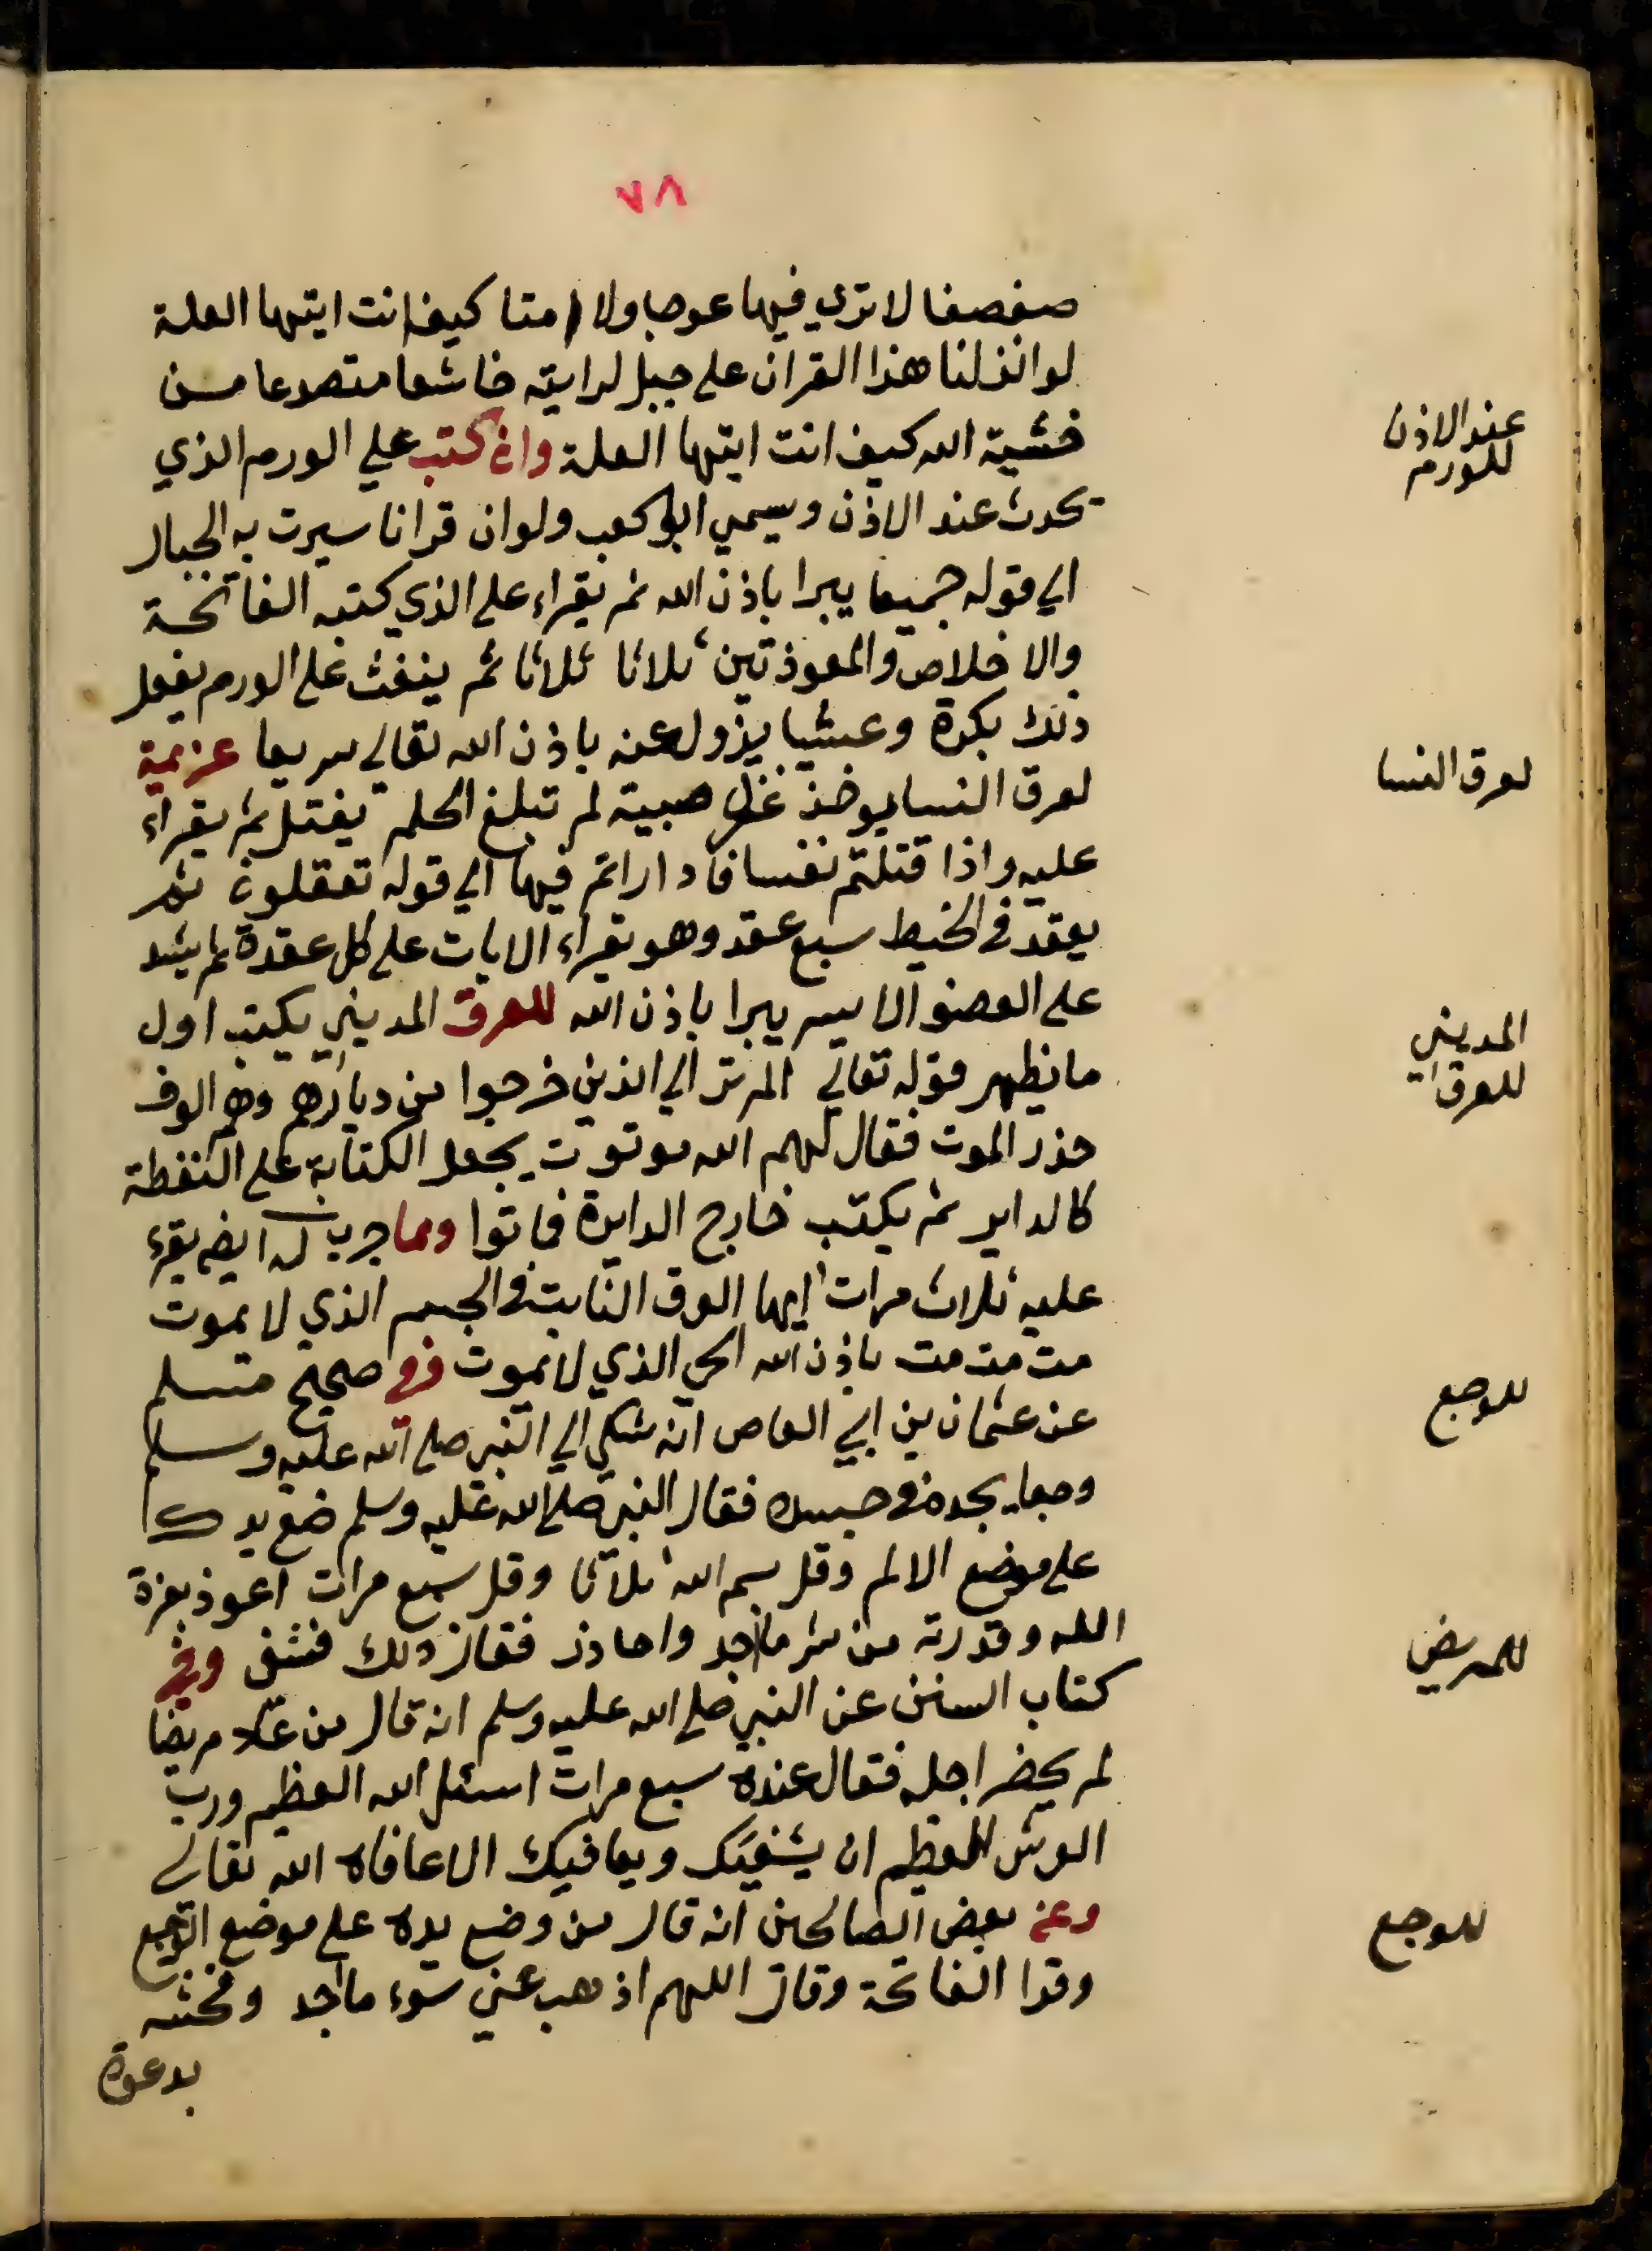 ٧٨
صفصفا لا تري فيها عوجا ولا امتا كيف انت ايتها العلة
لو انزلنا هذا القران على جبل لرايته خاشعا متصدعا من
خشية الله كيف انت ايتها العلة وان كتب علي الورم الذي
عند الاذن
للورم
يحدث عند الاذن ويسمي ابو كعب ولو ان قرانا سيرت به الجبال
الي قوله جميعا يبرا باذن الله ثم يقراء على الذي كتبه الفاتحة
والاخلاص والمعوذتين ثلاثا ثلاثا ثم ينفث على الورم يفعل
ذلك بكرة وعشيا يزول عنه باذن الله تعالي سريعا عزيمة
لعرق النسا
لعرق النسا يوخذ غزل صبية لم تبلغ الحلم يفتل ثم يقراء
عليه واذا قتلتم نفسا فاداراتم فيها الي قوله تعقلون ثم
يعقد في الخيط سبع عقد وهو يقراء الايات على كل عقدة ثم يشد
على العضو الايسر يبرا باذن الله للعرق المديني يكتب اول
المديني
للعرق
ما يظهر قوله تعالي الم تر الي الذين خرجوا من ديارهم وهم الوف
حذر الموت فقال لهم الله موتوا ت يجعل الكتابة على النفطة
كالداير ثم يكتب خارج الدايرة فماتوا ومما جرب له ايضا يقرء
عليه ثلاث مرات ايها العرق النابت في الجسم الذي لا يموت
مت مت مت باذن الله الحي الذي لا يموت في صحيح مسلم
للوجع
عن عثمان بن ابي العاص انه شكي الي النبي صلى الله عليه وسلم
وجعا يجده في جسده فقال النبي صلى الله عليه وسلم ضع يدك
على موضع الالم وقل بسم الله ثلاثا وقل سبع مرات اعوذ بعزة
الله وقدرته من شر ما اجد واحاذر فقال ذلك فشفي وفي
للمريض
كتاب السنن عن النبي صلى الله عليه وسلم انه قال من عاد مريضا
لم يحضر اجله فقال عنده سبع مرات اسئل الله العظيم ورب
العرش العظيم ان يشفيك ويعافيك الا عافاه الله تعالي
وعن بعض الصالحين انه قال من وضع يده على موضع الوجع
للوجع
وقرا الفاتحة وقال اللهم اذهب عني سوء ما اجد وفحشه
بدعوة